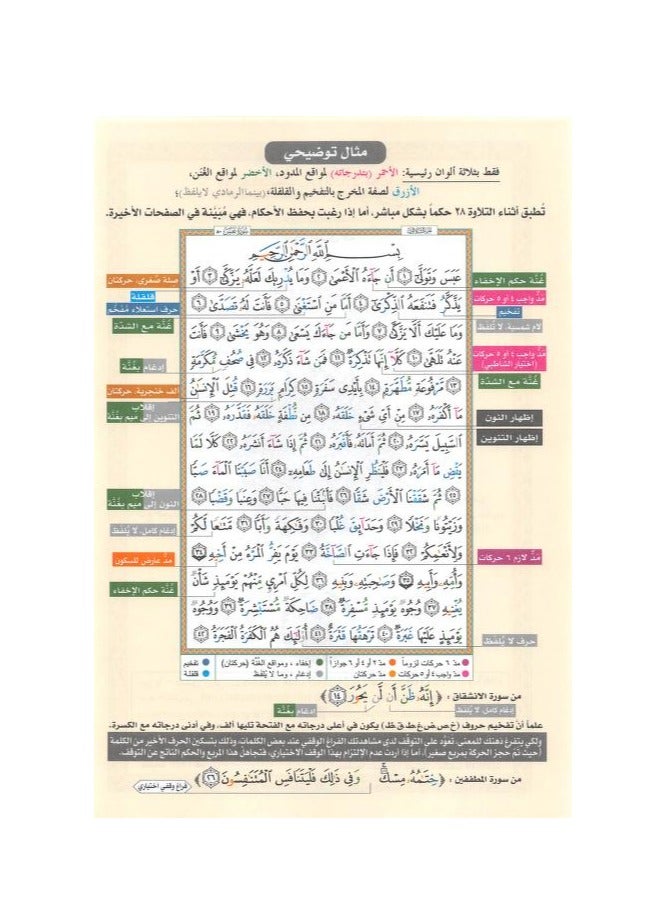 مثال توضيحي
فقط بثلاثة ألوان رئيسية: الأحمر (بتدرجاته) لمواقع المدود، الأخضر لمواقع الغُنَن،
الأزرق لصفة المخرج بالتفخيم والقلقلة، (بينما الرمادي لا يلفظ)؛
تُطبق أثناء التلاوة ٢٨ حكماً بشكل مباشر، أما إذا رغبت بحفظ الأحكام، فهي مُبَيَّنة في الصفحات الأخيرة.
بِسْمِ اللَّهِ الرَّحْمَٰنِ الرَّحِيمِ
عَبَسَ وَتَوَلَّىٰٓ ١ أَن جَآءَهُ ٱلْأَعْمَىٰ ٢ وَمَا يُدْرِيكَ لَعَلَّهُۥ يَزَّكَّىٰٓ ٣ أَوْ
يَذَّكَّرُ فَتَنفَعَهُ ٱلذِّكْرَىٰٓ ٤ أَمَّا مَنِ ٱسْتَغْنَىٰ ٥ فَأَنتَ لَهُۥ تَصَدَّىٰ ٦
وَمَا عَلَيْكَ أَلَّا يَزَّكَّىٰ ٧ وَأَمَّا مَن جَآءَكَ يَسْعَىٰ ٨ وَهُوَ يَخْشَىٰ ٩ فَأَنتَ
عَنْهُ تَلَهَّىٰ ١٠ كَلَّآ إِنَّهَا تَذْكِرَةٌ ١١ فَمَن شَآءَ ذَكَرَهُۥ ١٢ فِى صُحُفٍ مُّكَرَّمَةٍ
١٣ مَّرْفُوعَةٍ مُّطَهَّرَةٍۭ ١٤ بِأَيْدِى سَفَرَةٍ ١٥ كِرَامٍۭ بَرَرَةٍ ١٦ قُتِلَ ٱلْإِنسَٰنُ
مَآ أَكْفَرَهُۥ ١٧ مِنْ أَىِّ شَىْءٍ خَلَقَهُۥ ١٨ مِن نُّطْفَةٍ خَلَقَهُۥ فَقَدَّرَهُۥ ١٩ ثُمَّ
ٱلسَّبِيلَ يَسَّرَهُۥ ٢٠ ثُمَّ أَمَاتَهُۥ فَأَقْبَرَهُۥ ٢١ ثُمَّ إِذَا شَآءَ أَنشَرَهُۥ ٢٢ كَلَّا لَمَّا
يَقْضِ مَآ أَمَرَهُۥ ٢٣ فَلْيَنظُرِ ٱلْإِنسَٰنُ إِلَىٰ طَعَامِهِۦٓ ٢٤ أَنَّا صَبَبْنَا ٱلْمَآءَ صَبًّا
٢٥ ثُمَّ شَقَقْنَا ٱلْأَرْضَ شَقًّا ٢٦ فَأَنۢبَتْنَا فِيهَا حَبًّا ٢٧ وَعِنَبًا وَقَضْبًا ٢٨
وَزَيْتُونًا وَنَخْلًا ٢٩ وَحَدَآئِقَ غُلْبًا ٣٠ وَفَٰكِهَةً وَأَبًّا ٣١ مَّتَٰعًا لَّكُمْ
وَلِأَنْعَٰمِكُمْ ٣٢ فَإِذَا جَآءَتِ ٱلصَّآخَّةُ ٣٣ يَوْمَ يَفِرُّ ٱلْمَرْءُ مِنْ أَخِيهِ ٣٤
وَأُمِّهِۦ وَأَبِيهِ ٣٥ وَصَٰحِبَتِهِۦ وَبَنِيهِ ٣٦ لِكُلِّ ٱمْرِئٍ مِّنْهُمْ يَوْمَئِذٍ شَأْنٌ
يُغْنِيهِ ٣٧ وُجُوهٌ يَوْمَئِذٍ مُّسْفِرَةٌ ٣٨ ضَاحِكَةٌ مُّسْتَبْشِرَةٌ ٣٩ وَوُجُوهٌ
يَوْمَئِذٍ عَلَيْهَا غَبَرَةٌ ٤٠ تَرْهَقُهَا قَتَرَةٌ ٤١ أُو۟لَٰٓئِكَ هُمُ ٱلْكَفَرَةُ ٱلْفَجَرَةُ ٤٢
غُنَّة حكم الإخفاء
مدّ واجب ٤ أو ٥ حركات
تفخيم
لام شمسية، لا تلفظ
مدّ واجب ٤ أو ٥ حركات
(اختيار الشاطبي)
غُنَّة مع الشدّة
إظهار النون
إظهار التنوين
مَدّ لازم ٦ حركات
حرف لا يُلفظ
صلة صُغرى، حركتان
قلقلة
حرف استعلاء مُفخّم
غُنَّة مع الشدّة
إدغام بغُنَّة
ألف خنجرية، حركتان
إقلاب
التنوين إلى ميم بغُنَّة
إقلاب
النون إلى ميم بغُنَّة
إدغام كامل، لا يُلفظ
مَدّ عارض للسكون
غُنَّة حكم الإخفاء
مدّ ٦ حركات لزوماً مدّ ٢ أو ٤ أو ٦ جوازاً إخفاء، ومواقع الغُنَّة (حركتان) تفخيم
مدّ واجب ٤ أو ٥ حركات مدّ حركتان إدغام، وما لا يُلفظ قلقلة
من سورة الانشقاق: ﴿إِنَّهُۥ ظَنَّ أَن لَّن يَحُورَ ١٤﴾
إدغام كامل، لا يُلفظ إدغام بغُنَّة
علماً أنّ تفخيم حروف (خ،ص،ض،غ،ط،ق،ظ) يكون في أعلى درجاته مع الفتحة تليها ألف، وفي أدنى درجاته مع الكسرة.
ولكي يتفرغ ذهنك للمعنى، تعوَّد على التوقّف لدى مشاهدتك الفراغ الوقفي عند بعض الكلمات، وذلك بتسكين الحرف الأخير من الكلمة
(حيث تمّ حجز الحركة بمربع صغير)، أما إذا أردت عدم الإلتزام بهذا الوقف الاختياري، فتجاهل هذا المربع والحكم الناتج عن التوقف.
من سورة المطففين: ﴿خِتَٰمُهُۥ مِسْكٌ وَفِى ذَٰلِكَ فَلْيَتَنَافَسِ ٱلْمُتَنَٰفِسُونَ ٢٦﴾
فراغ وقفي اختياري